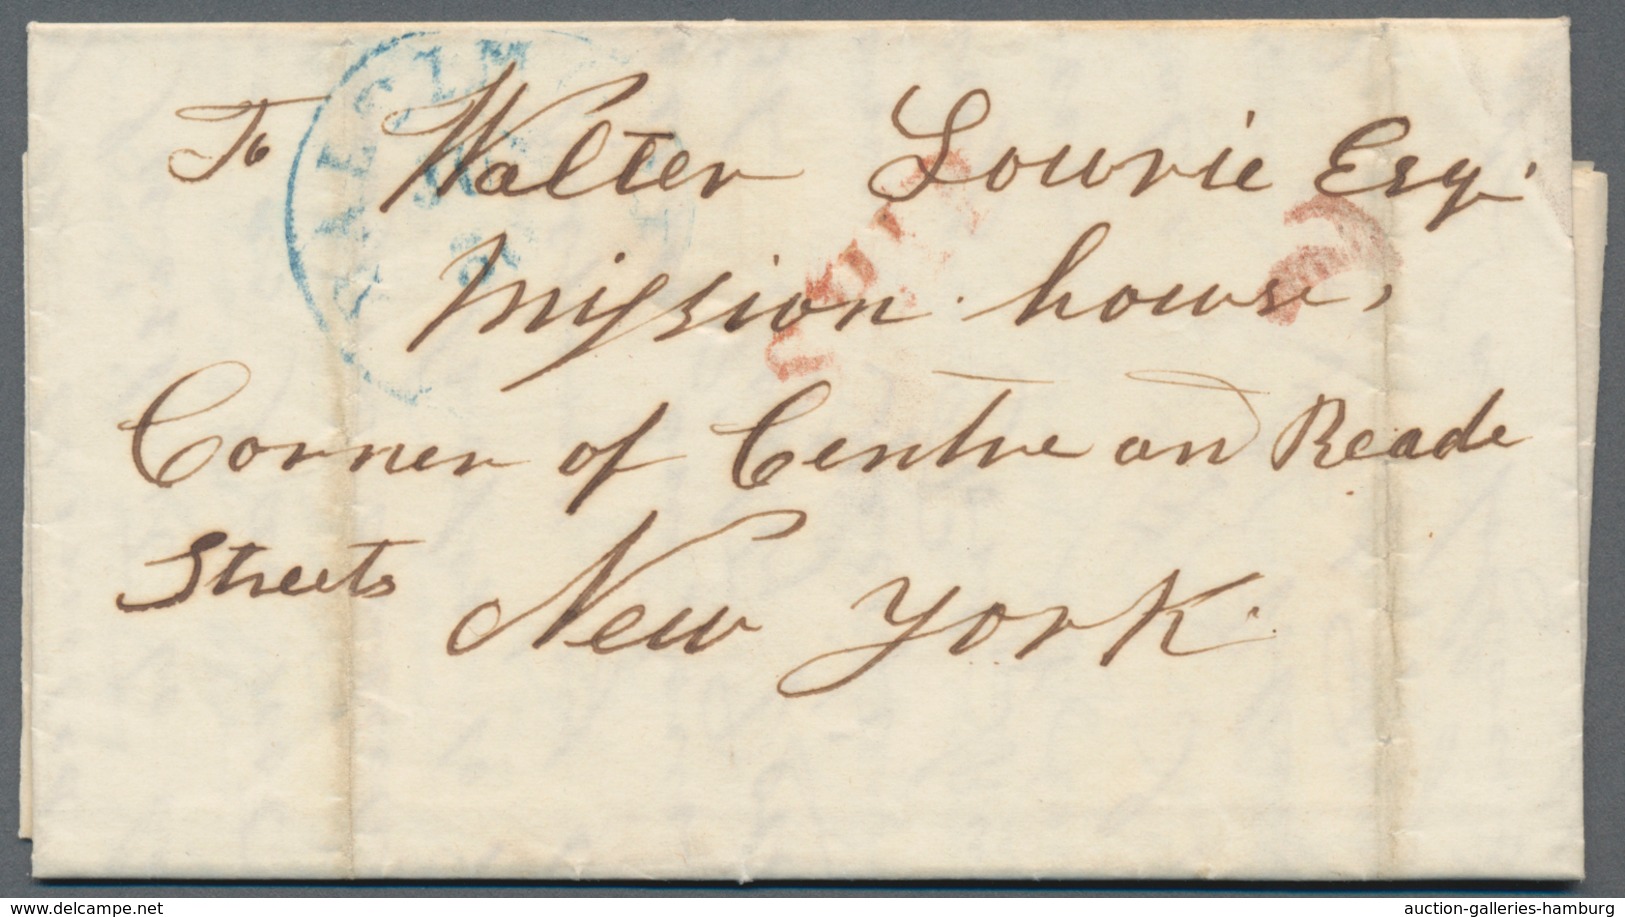 To Walter Lowrie Esqr
Mission house,
Corner of Centre and Reade
Streets New York.
www.delcampe.net
auction-galleries-hamburg